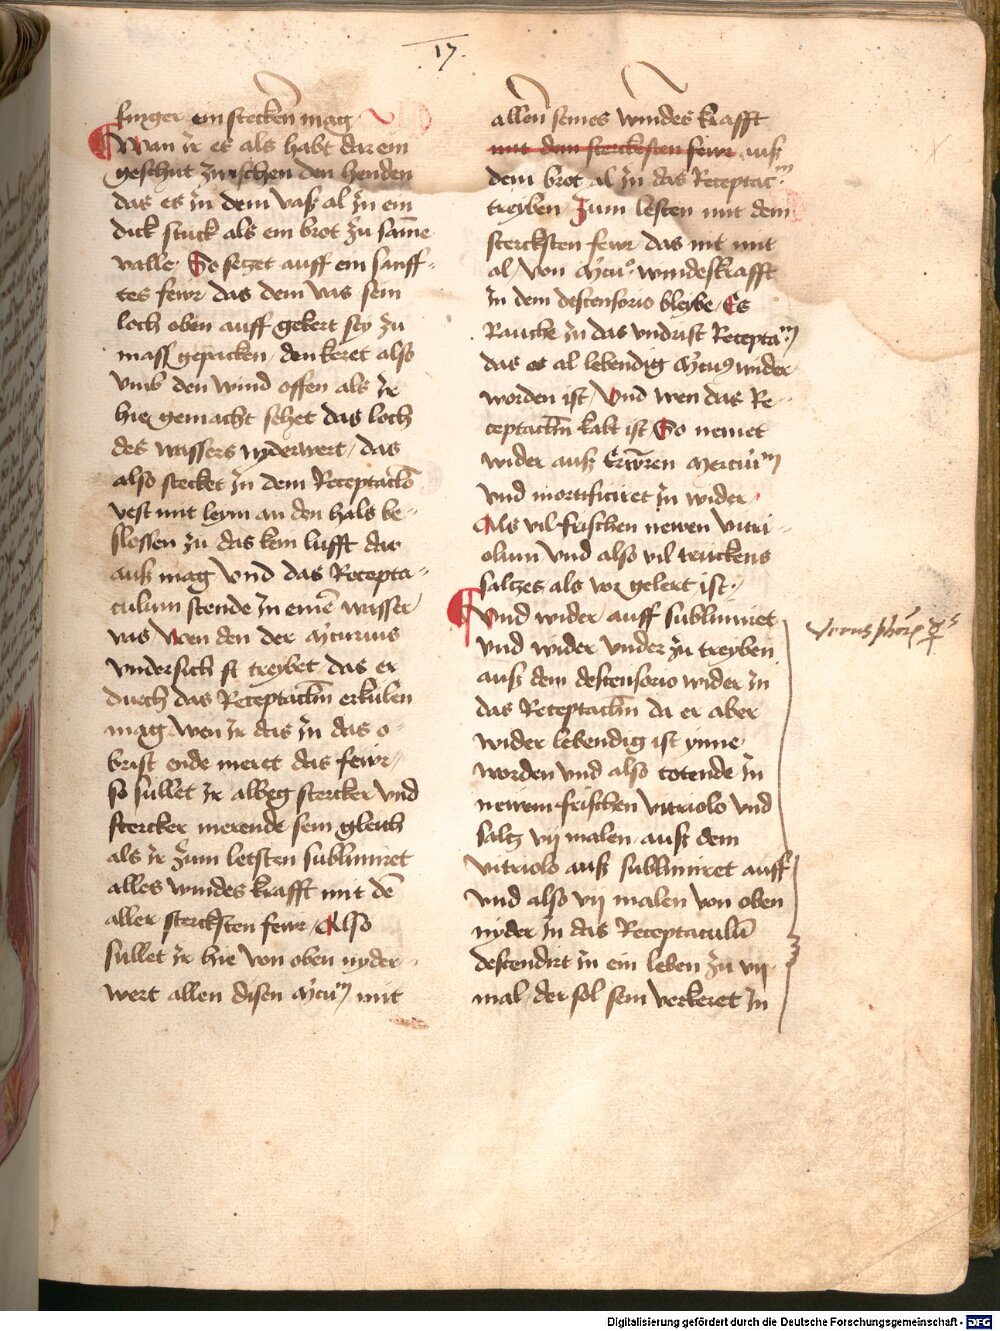 17.
finger ein stecken mag
Wan ir es als habt dar ein
geschut zwischen den henden
das es in dem vaß al in ein
dick stuck als ein brot zu same
valle. So setzet auff ein sanff-
tes fewr das dem vas sein
loch oben auff gekert sey zu
mass gepacken, den keret also
vmb den wind offen als ir
hie gemacht sehet das loch
des wassers nyderwert, das
also stecket in dem Receptaclo
vest mit leym an den hals be-
slossen zu das kein lufft dar
auß mag vnd das Recepta-
culum stende in einem wasser
vas wen den der mercurius
vndersich ist treybet das er
durch das Receptaclm erkulen
mag wen ir das in das o-
brist ende meret das fewr,
so sullet ir albeg stercker vnd
stercker merende sein gleich
als ir zum letsten sublimiret
alles windes krafft mit dem
aller stercksten fewr, Also
sullet ir hie von oben nyder-
wert allen disen mercurium mit
allen seines windes krafft
mit dem sterckesten fewr auß
dem brot al in das Receptac.m
treyben Zum lesten mit dem
stercksten fewr das nit mit
al von windeskrafft
in dem descensorio bleybe, Es
Rauche in das vndrist Recepta.m
das es al lebendig wider
worden ist, Vnd wen das Re-
ceptaclm kalt ist So nemet
wider auß Mercurium
vnd mortificiret in wider
Als vil frischen newen vitri-
olum vnd also vil truckens
saltzes als vor gelert ist.
Vnd wider auff sublimiret
vnd wider vnder zu treyben
auß dem descensorio wider in
das Receptaclm da er aber
wider lebendig ist ynne
worden vnd also totende in
newem frischen vitriolo vnd
saltz vij malen auß dem
vitriolo auß sublimiret auff
vnd also vij malen von oben
nyder in das Receptaculum
descendirt in ein leben zu vij
mal, der sol sein verkeret in
Digitalisierung gefördert durch die Deutsche Forschungsgemeinschaft - DFG